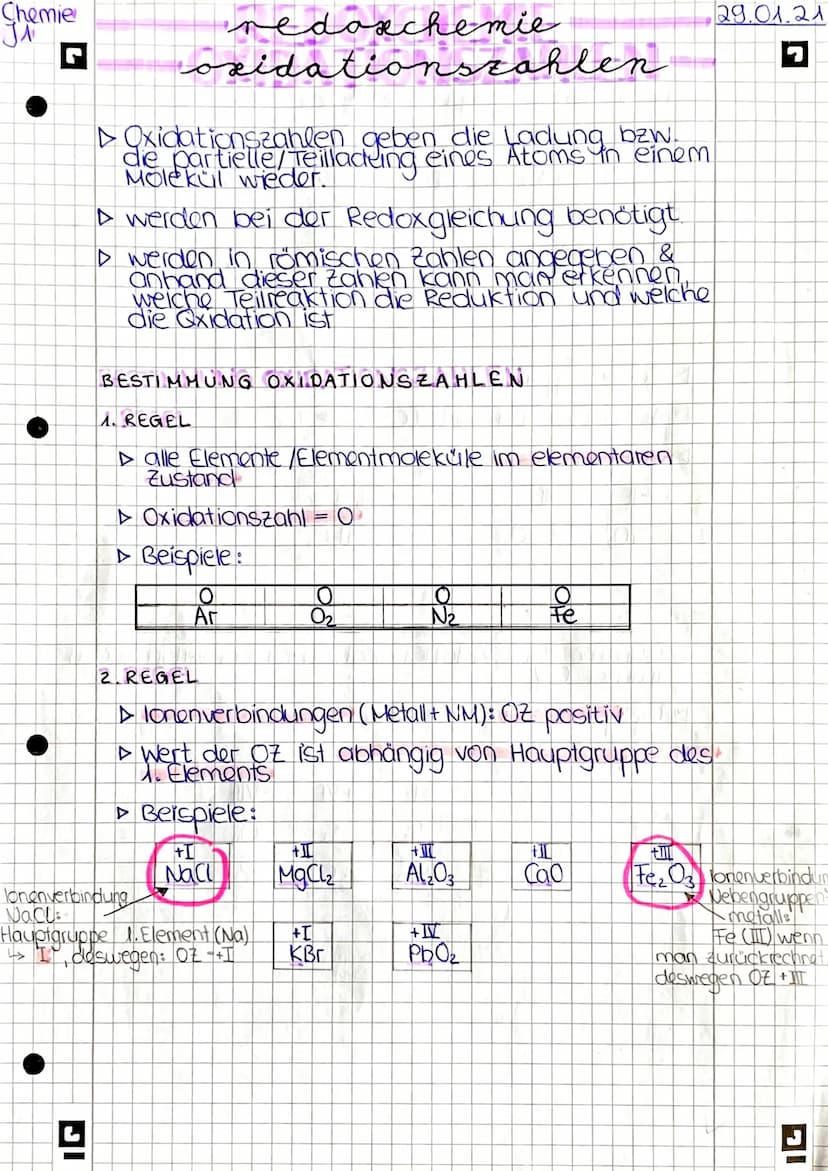 Chemie
J1
29.01.21
redoxchemie
oxidationszahlen
▷ Oxidationszahlen geben die Ladung bzw.
die partielle/Teilladung eines Atoms in einem
Molekül wieder.
▷ werden bei der Redoxgleichung benötigt
▷ werden in römischen Zahlen angegeben &
anhand dieser Zahlen kann man erkennen,
welche Teilreaktion die Reduktion und welche
die Oxidation ist
BESTIMMUNG OXIDATIONSZAHLEN
1. REGEL
▷ alle Elemente/Elementmoleküle im elementaren
Zustand
▷ Oxidationszahl = 0
▷ Beispiele:
0 0 0 0
Ar O2 N2 Fe
2. REGEL
▷ Ionenverbindungen (Metall + NM): OZ positiv
▷ Wert der OZ ist abhängig von Hauptgruppe des
1. Elements
▷ Beispiele:
+I +II +III +II +III
NaCl MgCl2 Al2O3 CaO Fe2O3
Ionenverbindung
NaCl:
Hauptgruppe 1. Element (Na)
↳ I, deswegen: OZ = +I
+I +IV
KBr PbO2
Ionenverbindun
Nebengruppen
metalle:
Fe (III) wenn
man zurückrechnet
deswegen OZ +III